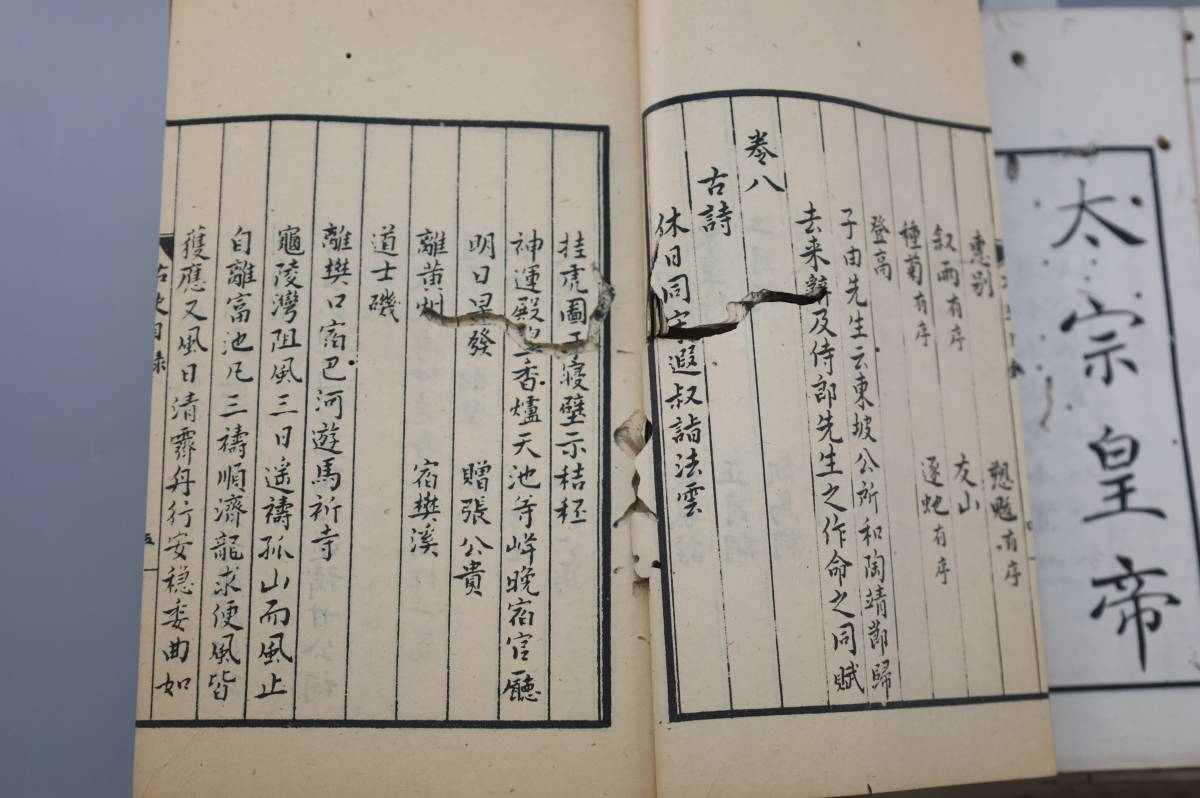 太宗皇帝
惠别　愬魃有序
叙雨有序　友山
種菊有序　逐虵有序
登高
子由先生云東坡公所和陶靖節歸
去来辭及侍郎先生之作命之同賦
卷八
古詩
休日同宋遐叔詣法雲
挂虎圖于寝壁示秸秠
神運殿望香爐天池寺峰晚宿官廳
明日早發　贈張公貴
離黄州　宿樊溪
道士磯
離樊口宿巴河遊馬祈寺
龜陵灣阻風三日遥禱孤山而風止
自離富池凡三禱順濟龍求便風皆
獲應又風日清霽舟行安穏委曲如
右史目録　五